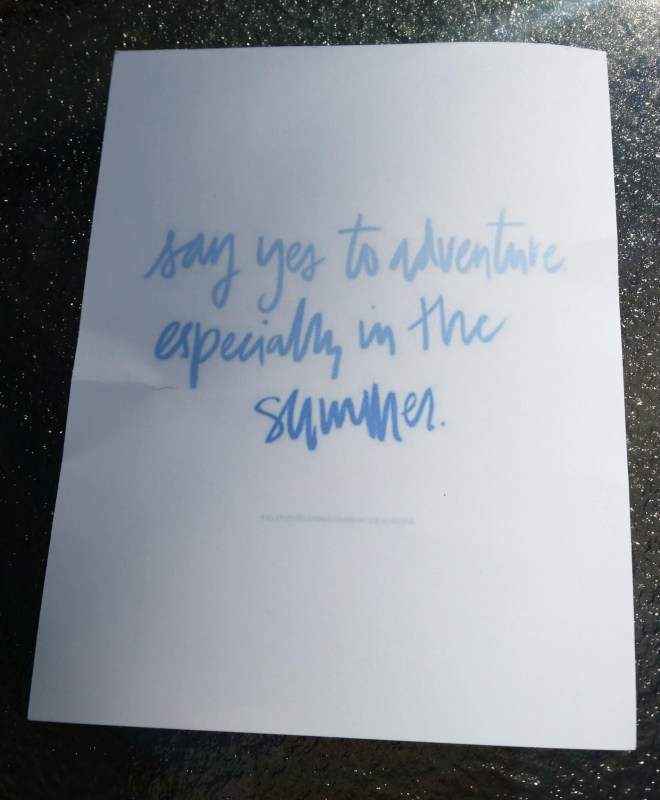 say yes to adventure
especially in the
summer.